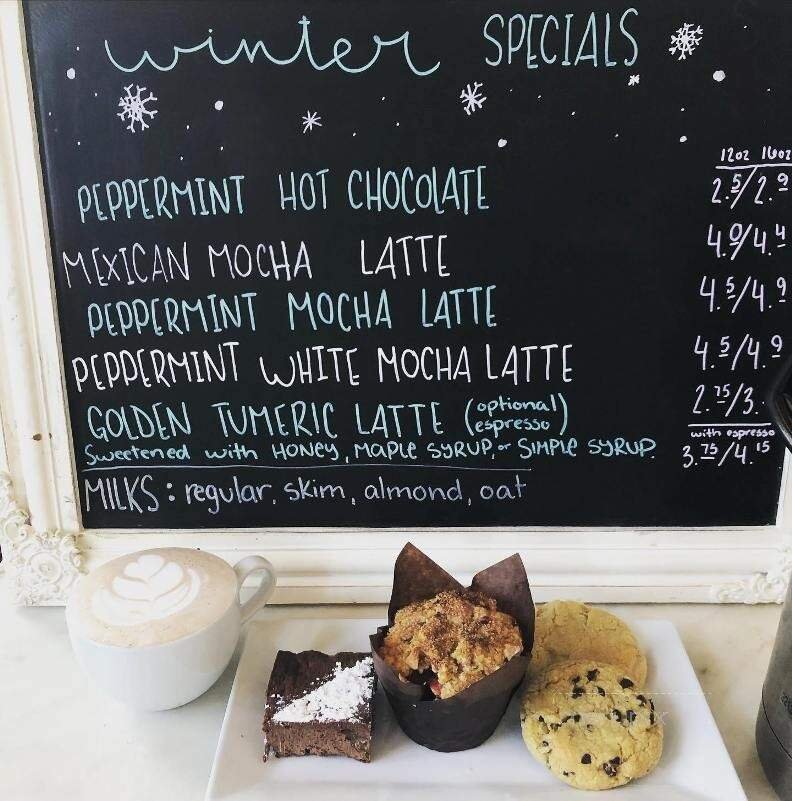 winter SPECIALS
12oz 16oz
PEPPERMINT HOT CHOCOLATE 2.5/2.9
MEXICAN MOCHA LATTE 4.0/4.4
PEPPERMINT MOCHA LATTE 4.5/4.9
PEPPERMINT WHITE MOCHA LATTE 4.5/4.9
GOLDEN TUMERIC LATTE (optional espresso) 2.75/3.
with espresso
Sweetened with HONEY, MAPLE SYRUP, or SIMPLE SYRUP. 3.75/4.15
MILKS: regular, skim, almond, oat